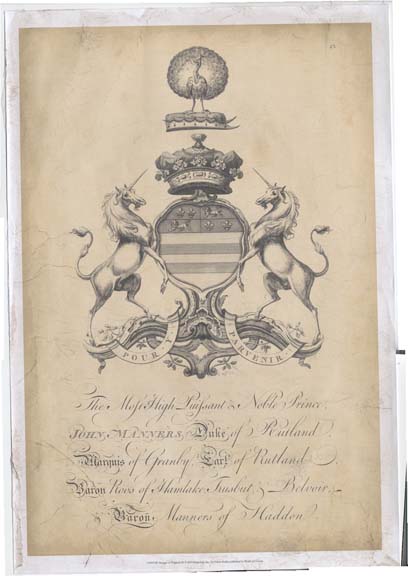 POUR Y PARVENIR
The Most High Puissant & Noble Prince
JOHN, MANNERS, Duke of Rutland
Marquis of Granby, Earl of Rutland
Baron Roos of Hamlake Trusbut, & Belvoir,
Baron Manners of Haddon